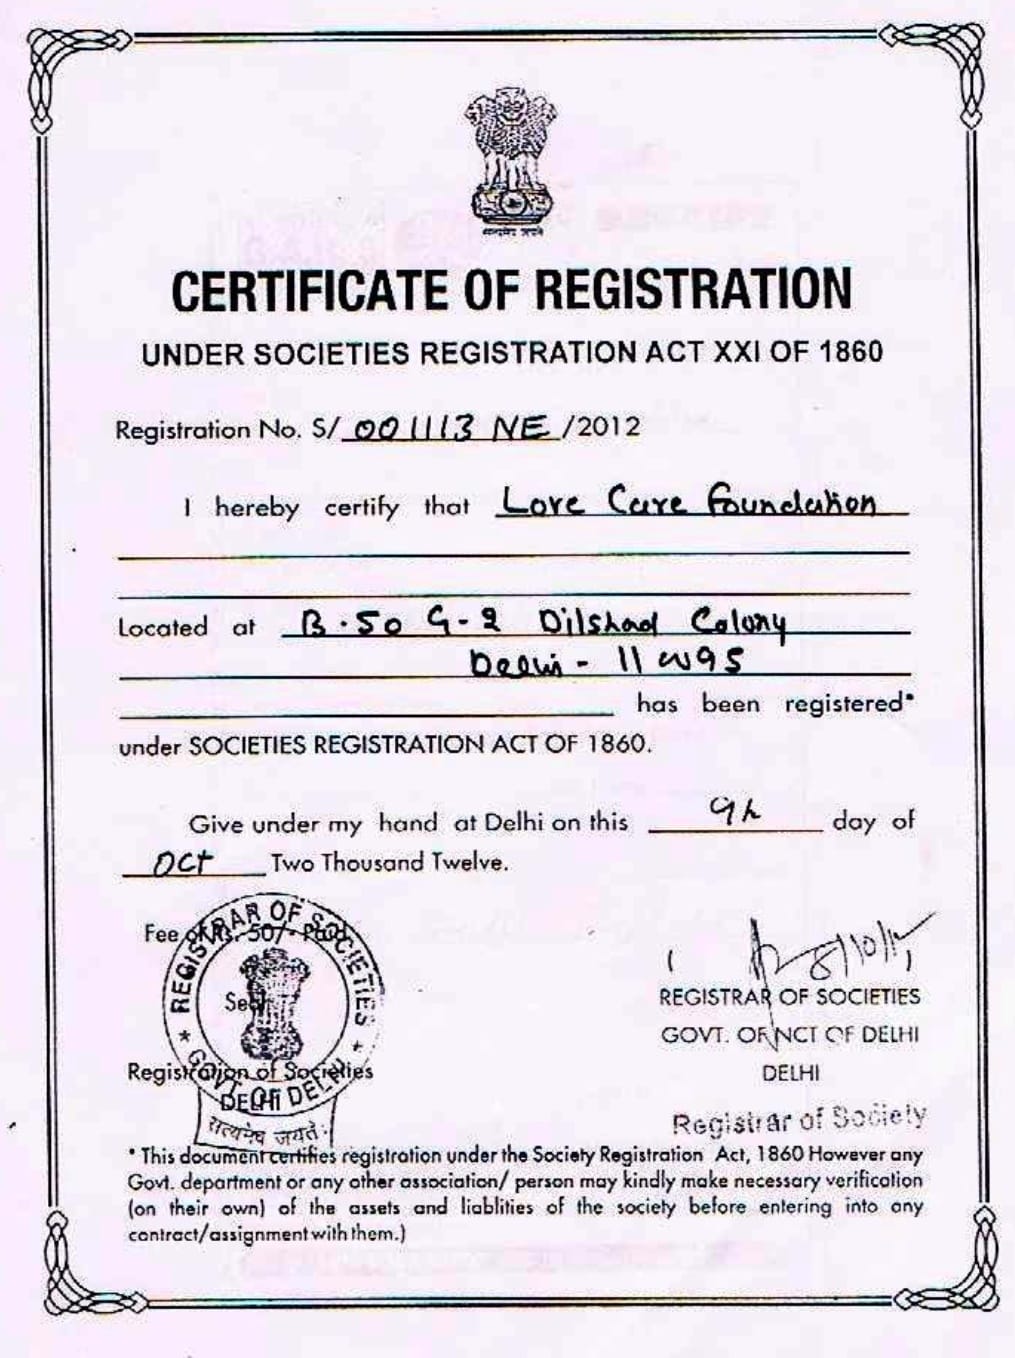 सत्यमेव जयते
CERTIFICATE OF REGISTRATION
UNDER SOCIETIES REGISTRATION ACT XXI OF 1860
Registration No. S/ 001113 NE /2012
I hereby certify that Love Care Foundation
Located at B-50 G-2 Dilshad Colony
Delhi - 110095
has been registered*
under SOCIETIES REGISTRATION ACT OF 1860.
Give under my hand at Delhi on this 9th day of
Oct Two Thousand Twelve.
Fee of Rs. 50/- Paid
REGISTRAR OF SOCIETIES
GOVT. OF DELHI
Seal
Registration of Societies
DELHI
सत्यमेव जयते
REGISTRAR OF SOCIETIES
GOVT. OF NCT OF DELHI
DELHI
Registrar of Society
* This document certifies registration under the Society Registration Act, 1860 However any
Govt. department or any other association/ person may kindly make necessary verification
(on their own) of the assets and liablities of the society before entering into any
contract/assignment with them.)